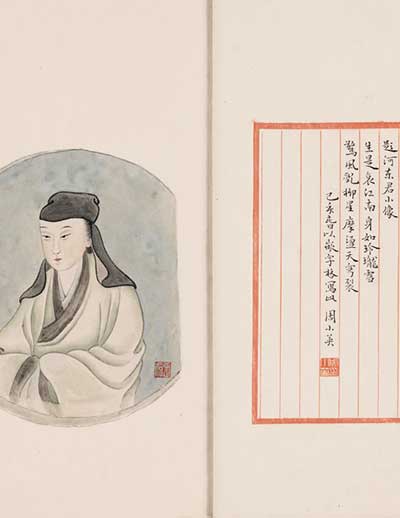 题河东君小像
生是哀江南 身如玲瓏雪
驚風亂柳星 摩盪天穹裂
己亥 以 字 寫 周小英